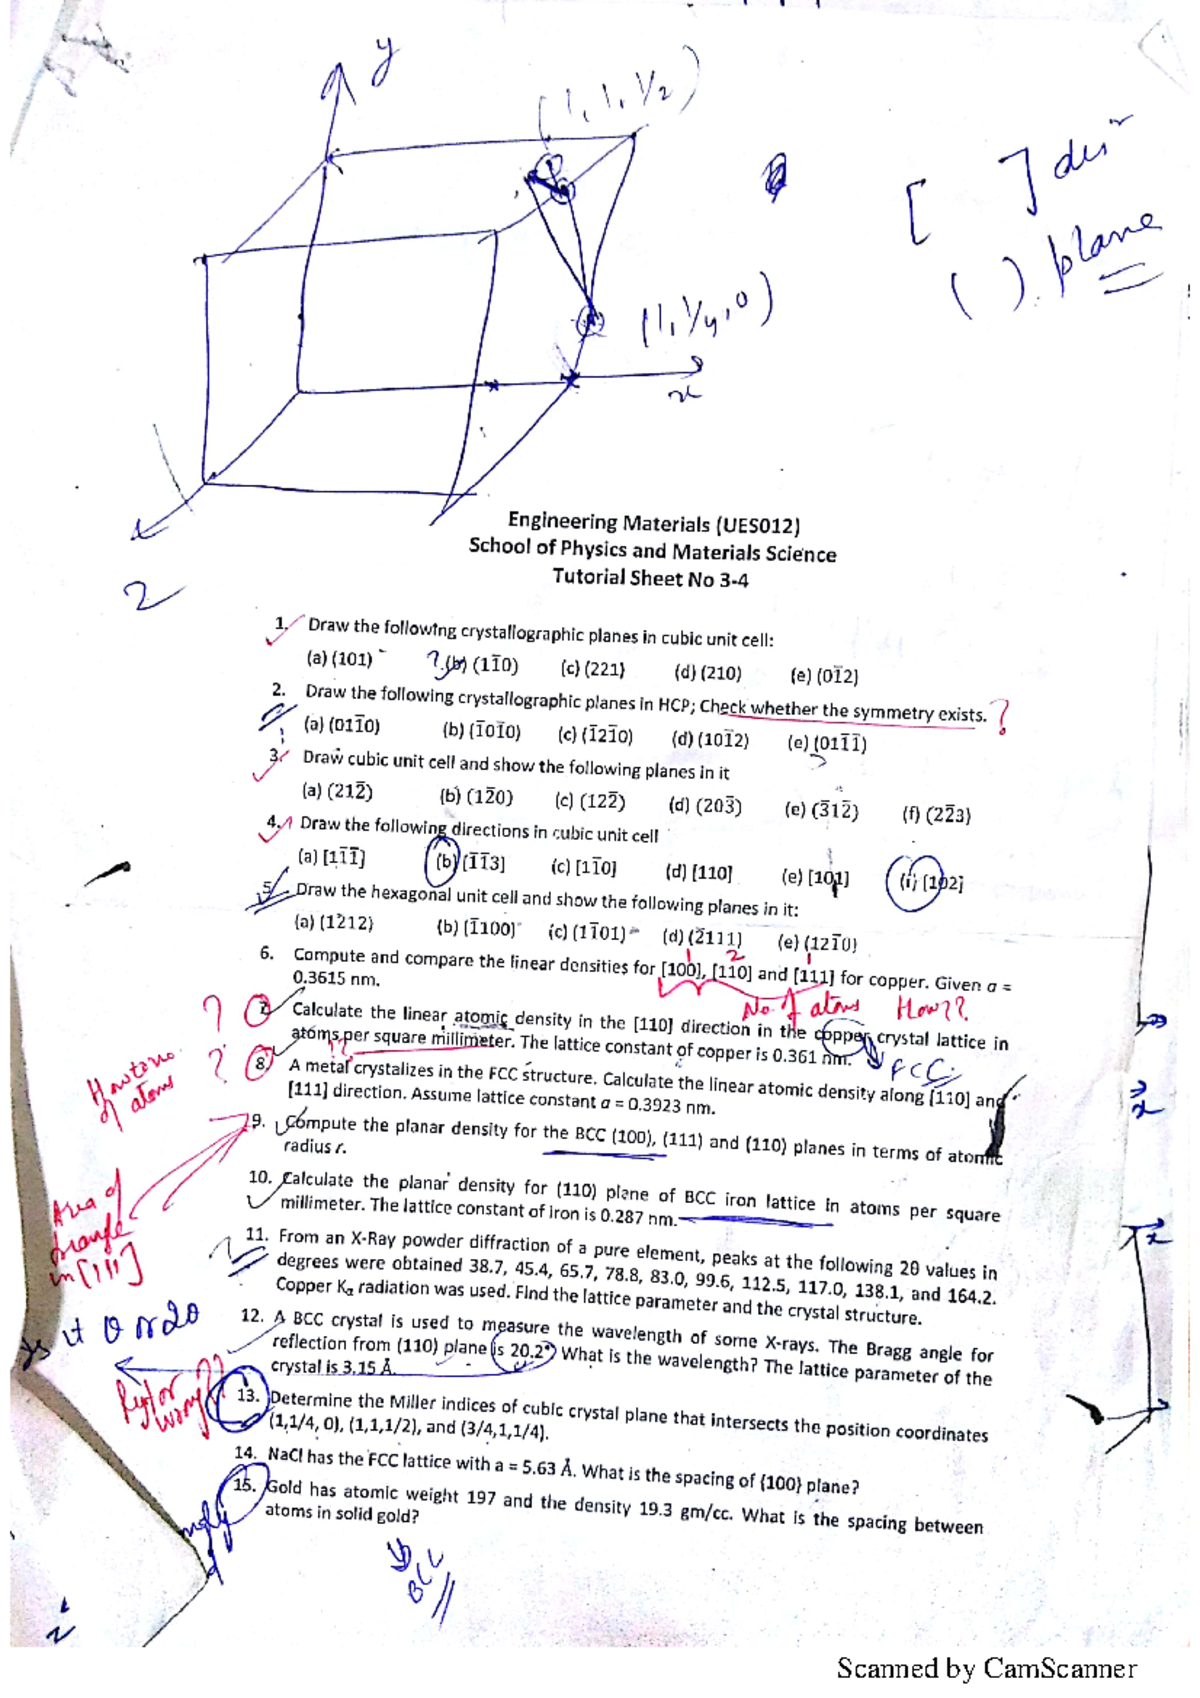 y
(1, 1, 1/2)
[ ]
( ). plane
(1, 1/4, 0)
x
z
Engineering Materials (UES012)
School of Physics and Materials Science
Tutorial Sheet No 3-4
1. Draw the following crystallographic planes in cubic unit cell:
(a) (101) ? (b) (11̅0) (c) (221) (d) (210) (e) (01̅2)
2. Draw the following crystallographic planes in HCP; Check whether the symmetry exists. ?
(a) (011̅0) (b) (1̅01̅0) (c) (1̅21̅0) (d) (101̅2) (e) (011̅1̅)
3. Draw cubic unit cell and show the following planes in it
(a) (212̅) (b) (12̅0) (c) (122̅) (d) (203̅) (e) (3̅12̅) (f) (22̅3)
4. Draw the following directions in cubic unit cell
(a) [11̅1̅] (b) [1̅1̅3] (c) [11̅0] (d) [110] (e) [101] (i) [102]
5. Draw the hexagonal unit cell and show the following planes in it:
(a) (1212) (b) (1̅100) (c) (11̅01) (d) (2̅111) (e) (121̅0)
6. Compute and compare the linear densities for [100], [110] and [111] for copper. Given a =
0.3615 nm.
1 2 1
No. of atoms How??
? 7. Calculate the linear atomic density in the [110] direction in the copper crystal lattice in
atoms per square millimeter. The lattice constant of copper is 0.361 nm.
FCC
How to no. of atoms ?
8. A metal crystalizes in the FCC structure. Calculate the linear atomic density along [110] and
[111] direction. Assume lattice constant a = 0.3923 nm.
9. Compute the planar density for the BCC (100), (111) and (110) planes in terms of atomic
radius r.
Area of triangle in [111]
10. Calculate the planar density for (110) plane of BCC iron lattice in atoms per square
millimeter. The lattice constant of iron is 0.287 nm.
11. From an X-Ray powder diffraction of a pure element, peaks at the following 2θ values in
degrees were obtained 38.7, 45.4, 65.7, 78.8, 83.0, 99.6, 112.5, 117.0, 138.1, and 164.2.
Copper Kα radiation was used. Find the lattice parameter and the crystal structure.
Is it θ or 2θ
12. A BCC crystal is used to measure the wavelength of some X-rays. The Bragg angle for
reflection from (110) plane is 20.2° What is the wavelength? The lattice parameter of the
crystal is 3.15 Å.
Right or wrong??
13. Determine the Miller indices of cubic crystal plane that intersects the position coordinates
(1,1/4, 0), (1,1,1/2), and (3/4,1,1/4).
14. NaCl has the FCC lattice with a = 5.63 Å. What is the spacing of {100} plane?
15. Gold has atomic weight 197 and the density 19.3 gm/cc. What is the spacing between
atoms in solid gold?
BCC
x
x
z
Scanned by CamScanner